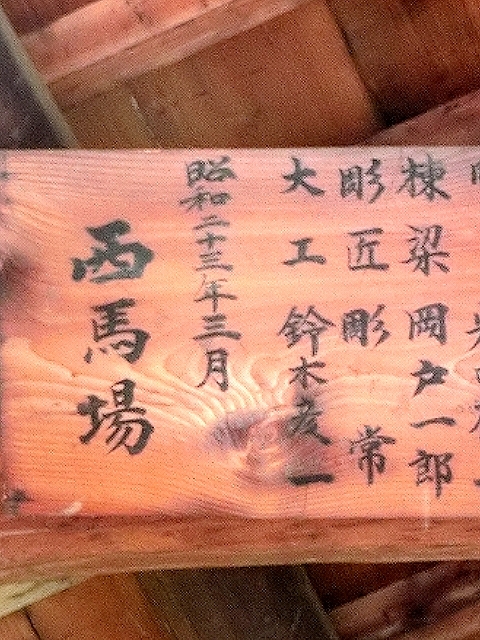 棟梁 岡戸一郎
彫匠 彫常
大工 鈴木彦一
昭和二十三年三月
西馬場